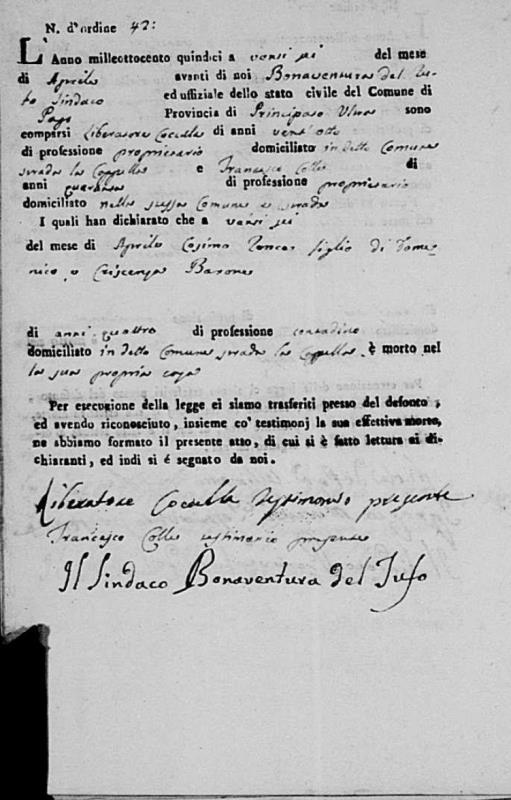 N. d'ordine 42:
L' Anno milleottocento quindici a venti sei del mese
di Aprile avanti di noi Bonaventura del Tu-
fo Sindaco ed uffiziale dello stato civile del Comune di
Pago Provincia di Principato Ultra sono
comparsi Liberatore Coccella di anni vent'otto
di professione proprietario domiciliato in detto Comune
strada la Cappella e Francesco Colle di
anni quaranta di professione proprietario
domiciliato nella stessa Comune e strada
I quali han dichiarato che a venti sei
del mese di Aprile Cosimo figlio di Dome-
nico e Barone
di anni quattro di professione contadino
domiciliato in detto Comune strada la Cappella è morto nel
la sua propria casa
Per esecuzione della legge ci siamo trasferiti presso del defonto,
ed avendo riconosciuto, insieme co' testimonj la sua effettiva morte,
ne abbiamo formato il presente atto, di cui si è fatto lettura ai di-
chiaranti, ed indi si é segnato da noi.
Liberatore Coccella testimonio presente
Francesco Colle testimonio presente
Il Sindaco Bonaventura del Tufo